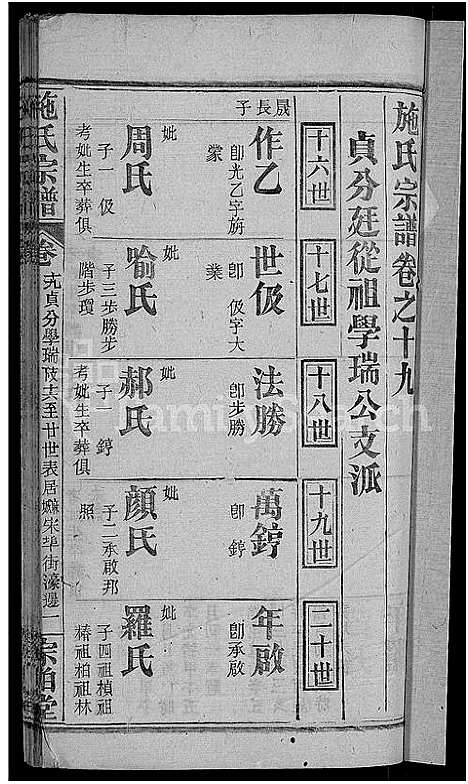 施氏宗譜卷之十九
貞分廷從祖學瑞公支派
十六世
十七世
十八世
十九世
二十世
晟長子
作乙
即光乙字旃
業
世伋
即伋字大
業
法勝
即步勝
萬錞
即錞
年啟
即承啟
妣
周氏
子一伋
考妣生卒葬俱
妣
喻氏
子三步勝步
階步瓊
妣
郝氏
子一錞
考妣生卒葬俱
妣
顏氏
子二承啟邦
照
妣
羅氏
子四祖楨祖
椿祖柏祖林
施氏宗譜
卷
貞分學瑞
至廿世表居
宋埠街濠邊
一
FamilySearch